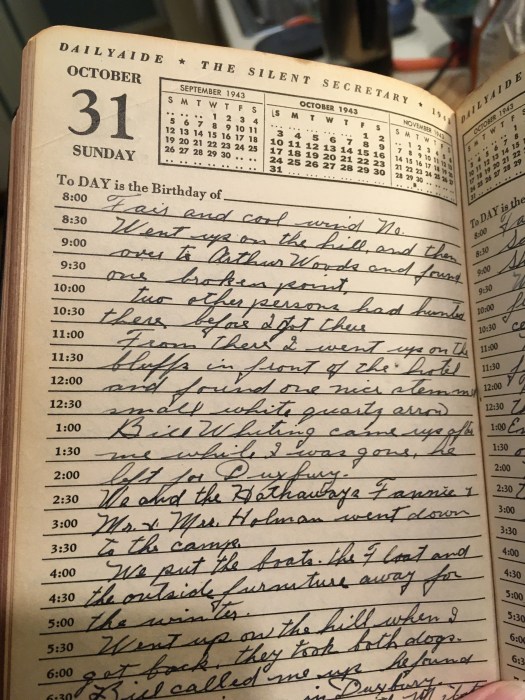 DAILYAIDE ★ THE SILENT SECRETARY ★ 194
OCTOBER
31
SUNDAY
SEPTEMBER 1943
S M T W T F S
. . . 1 2 3 4
5 6 7 8 9 10 11
12 13 14 15 16 17 18
19 20 21 22 23 24 25
26 27 28 29 30 . .
OCTOBER 1943
S M T W T F S
. . . . . 1 2
3 4 5 6 7 8 9
10 11 12 13 14 15 16
17 18 19 20 21 22 23
24 25 26 27 28 29 30
31
NOVEMBER 1943
To DAY is the Birthday of
8:00 Fair and cool wind No.
8:30 Went up on the hill, and then
9:00 over to Arthur Woods and found
9:30 one broken point,
10:00 two other persons had hunted
10:30 there before I got there
11:00 From there I went up on the
11:30 bluffs in front of the hotel
12:00 and found one nice stemm
12:30 small white quartz arrow
1:00 Bill Whiting came up after
1:30 me while I was gone, he
2:00 left for Duxbury.
2:30 We and the Hathaways Fannie &
3:00 Mr. & Mrs. Holman went down
3:30 to the camp.
4:00 We put the boats. the Float and
4:30 the outside furniture away for
5:00 the winter.
5:30 Went up on the hill when I
6:00 got back. they took both dogs.
6:30 Bill called me up he found
in Duxbury.
DAILYAIDE
OCTOBER 1943
To DAY is the
8:00
8:30
9:00
9:30
10:00
10:30
11:00
11:30
12:00
12:30
1:00
1:30
2:00
2:30
3:00
3:30
4:00
4:30
5:00
5:30